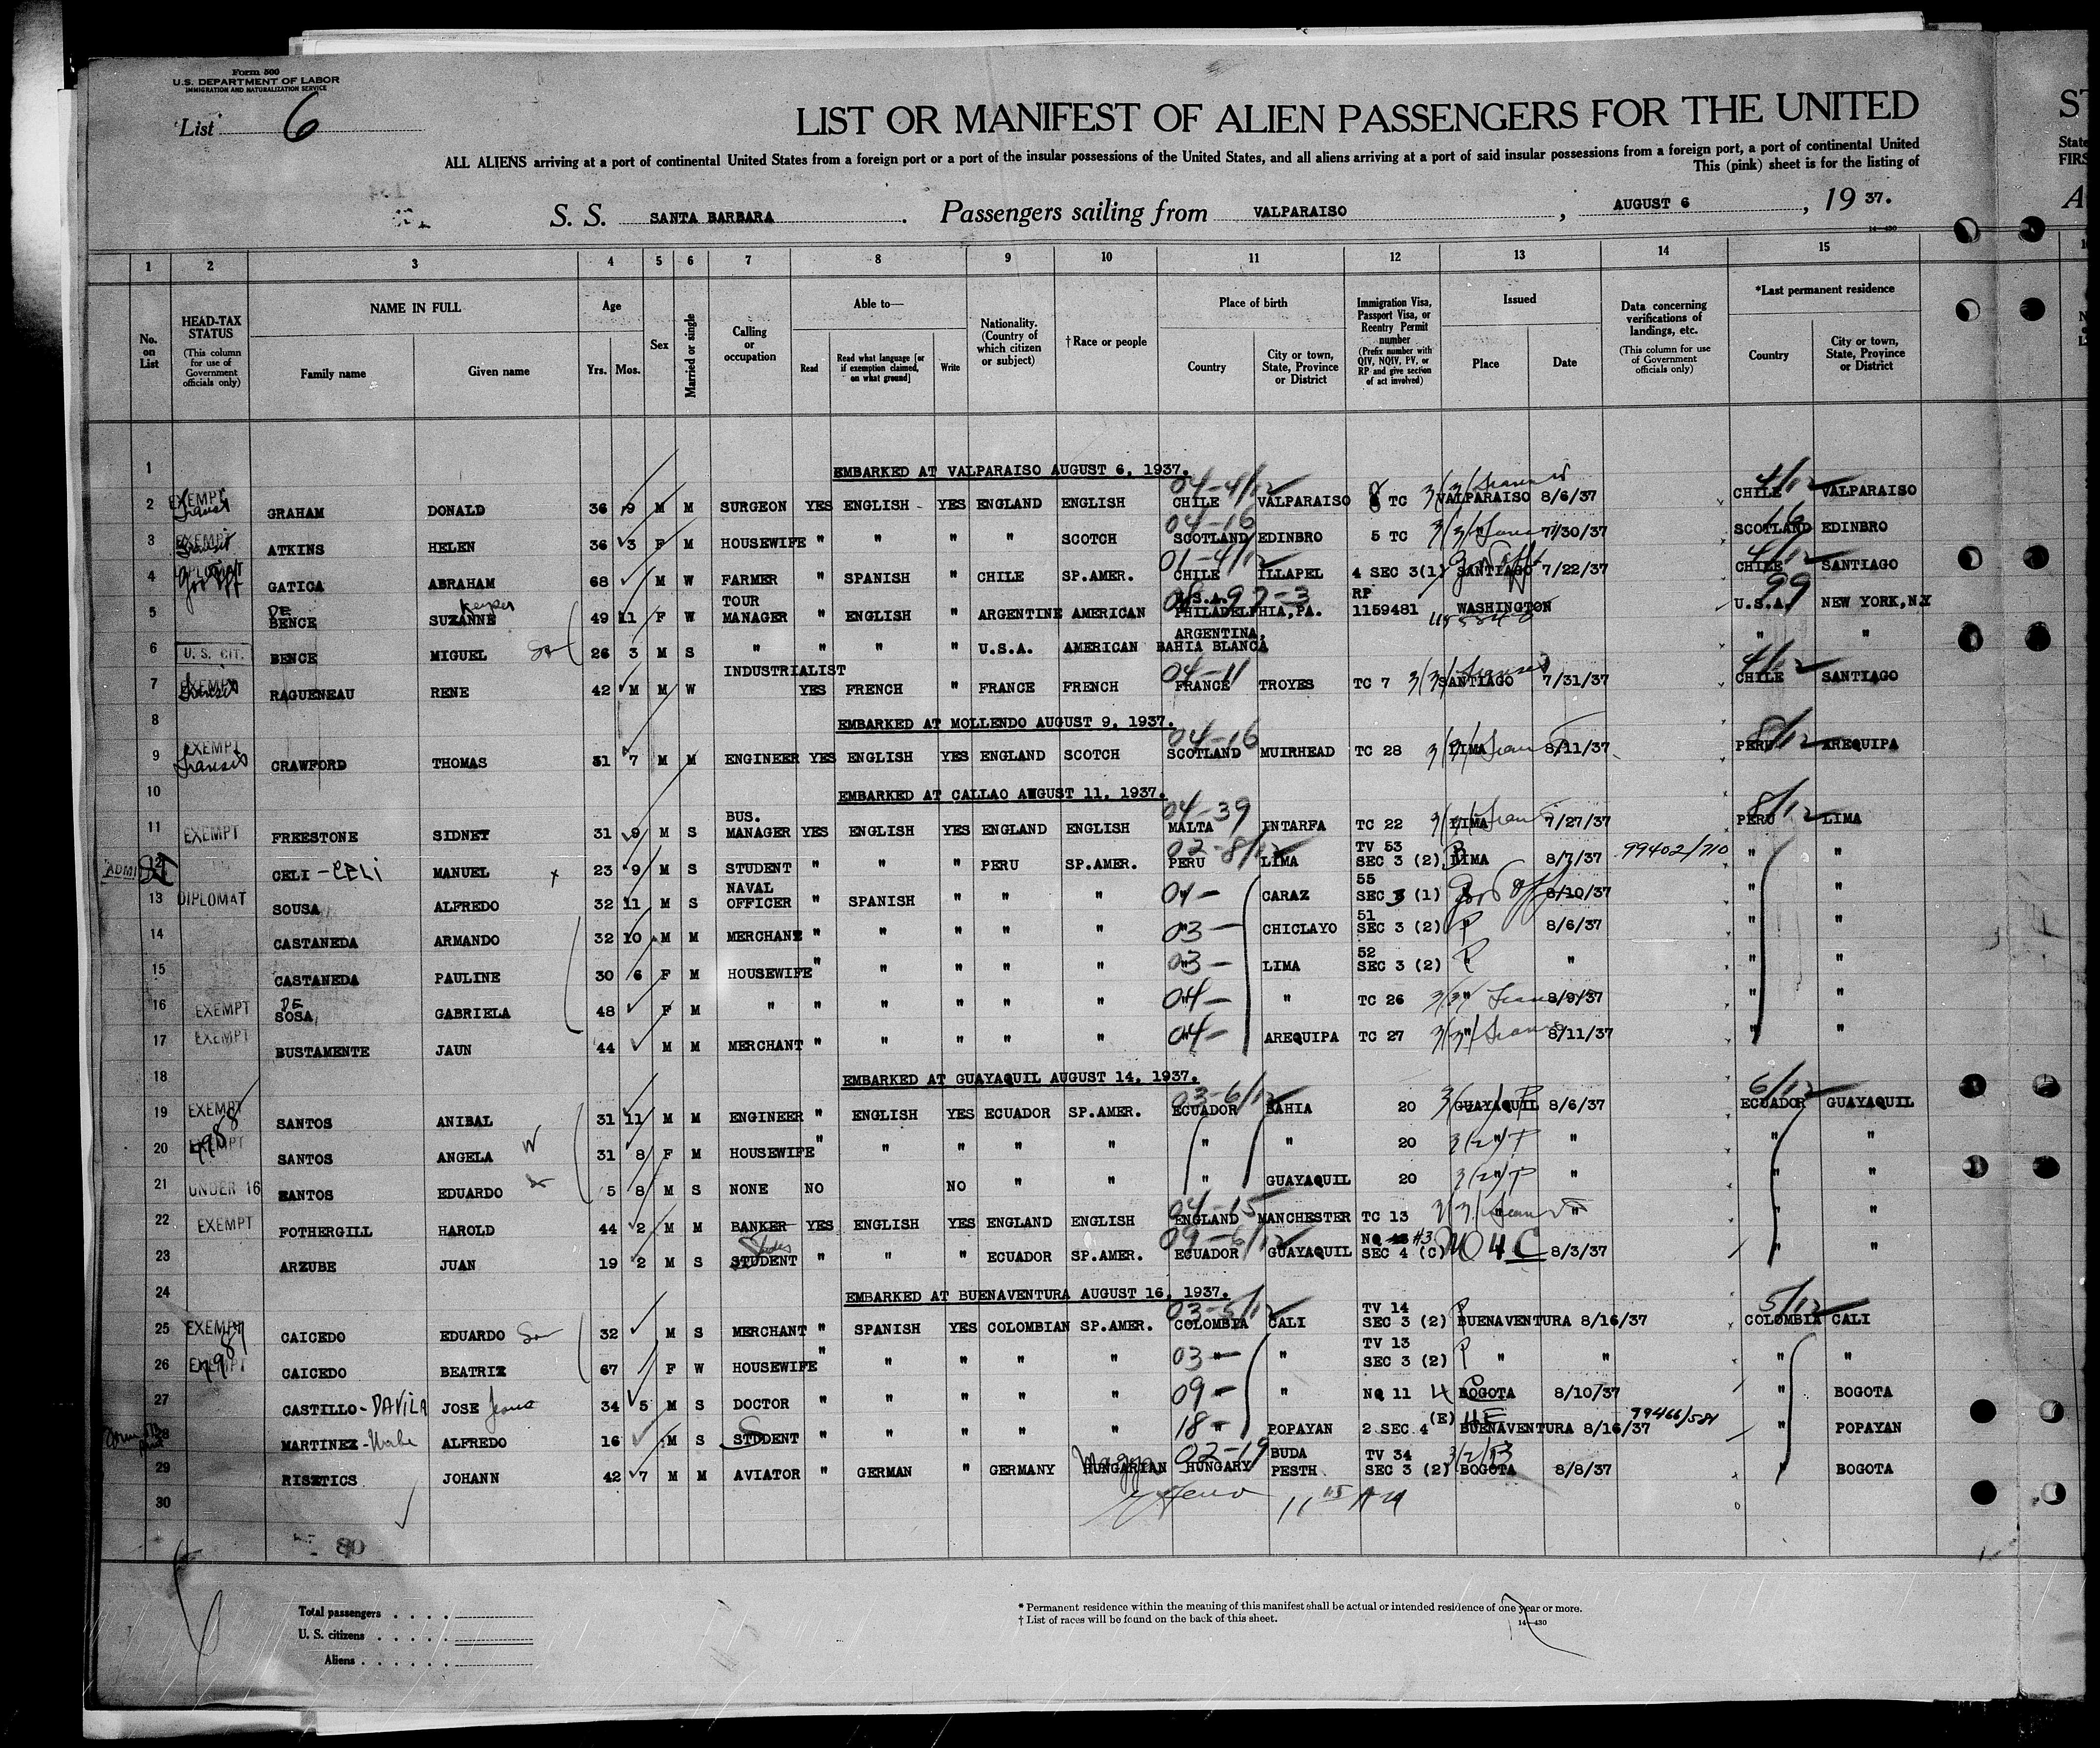 Form 500
U.S. DEPARTMENT OF LABOR
IMMIGRATION AND NATURALIZATION SERVICE
List 6
LIST OR MANIFEST OF ALIEN PASSENGERS FOR THE UNITED
ALL ALIENS arriving at a port of continental United States from a foreign port or a port of the insular possessions of the United States, and all aliens arriving at a port of said insular possessions from a foreign port, a port of continental United
This (pink) sheet is for the listing of
S. S. SANTA BARBARA. Passengers sailing from VALPARAISO, AUGUST 6, 1937.
14—430
1 2 3 4 5 6 7 8 9 10 11 12 13 14 15
No. on List
HEAD-TAX STATUS (This column for use of Government officials only)
NAME IN FULL Family name Given name
Age Yrs. Mos.
Sex
Married or single
Calling or occupation
Able to— Read Read what language [or if exemption claimed, on what ground] Write
Nationality. (Country of which citizen or subject)
†Race or people
Place of birth Country City or town, State, Province or District
Immigration Visa, Passport Visa, or Reentry Permit number (Prefix number with QIV, NQIV, PV, or RP and give section of act involved)
Issued Place Date
Data concerning verifications of landings, etc. (This column for use of Government officials only)
*Last permanent residence Country City or town, State, Province or District
1 EMBARKED AT VALPARAISO AUGUST 6, 1937. 04-4/12 4/12
2 EXEMPT Transit GRAHAM DONALD 36 9 M M SURGEON YES ENGLISH YES ENGLAND ENGLISH CHILE VALPARAISO 8 TC 3/3/ VALPARAISO 8/6/37 CHILE VALPARAISO
04-16 16
3 EXEMPT Transit ATKINS HELEN 36 3 F M HOUSEWIFE " " " " SCOTCH SCOTLAND EDINBRO 5 TC 3/3/ " 7/30/37 SCOTLAND EDINBRO
01-4/12 4/12
4 DIPLOMAT Gov Off GATICA ABRAHAM 68 M W FARMER " SPANISH " CHILE SP.AMER. CHILE ILLAPEL 4 SEC 3(1) SANTIAGO Gov Off 7/22/37 CHILE SANTIAGO
5 DE BENCE SUZANNE Keyper 49 11 F W TOUR MANAGER " ENGLISH " ARGENTINE AMERICAN U.S.A. PHILADELPHIA,PA. RP 1159481 WASHINGTON U.S.A. 99 NEW YORK,N.Y
6 U. S. CIT. BENCE MIGUEL Son 26 3 M S " " " " U.S.A. AMERICAN ARGENTINA, BAHIA BLANCA " "
04-11 4/12
7 EXEMPT Transit RAGUENEAU RENE 42 M M W INDUSTRIALIST YES FRENCH " FRANCE FRENCH FRANCE TROYES TC 7 3/3/ SANTIAGO 7/31/37 CHILE SANTIAGO
8 EMBARKED AT MOLLENDO AUGUST 9, 1937.
04-16 8/12
9 EXEMPT Transit CRAWFORD THOMAS 31 7 M M ENGINEER YES ENGLISH YES ENGLAND SCOTCH SCOTLAND MUIRHEAD TC 28 3/3/ LIMA 8/11/37 PERU AREQUIPA
10 EMBARKED AT CALLAO AUGUST 11, 1937.
04-39 8/12
11 EXEMPT FREESTONE SIDNEY 31 9 M S BUS. MANAGER YES ENGLISH YES ENGLAND ENGLISH MALTA INTARFA TC 22 3/3/ LIMA 7/27/37 PERU LIMA
02-8/12
12 ADMI CELI -CELI MANUEL x 23 9 M S STUDENT " " " PERU SP.AMER. PERU LIMA TV 53 SEC 3 (2) LIMA 8/7/37 99402/710 " "
13 DIPLOMAT SOUSA ALFREDO 32 11 M S NAVAL OFFICER " SPANISH " " " 01- CARAZ 55 SEC 3 (1) Gov Off 8/10/37 " "
14 CASTANEDA ARMANDO 32 10 M M MERCHANT " " " " " 03- CHICLAYO 51 SEC 3 (2) P 8/6/37 " "
15 CASTANEDA PAULINE 30 6 F M HOUSEWIFE " " " " " 03- LIMA 52 SEC 3 (2) P " " "
16 EXEMPT DE SOSA, GABRIELA 48 F M " " " " " " 04- " TC 26 3/3/ " 8/9/37 " "
17 EXEMPT BUSTAMENTE JAUN 44 M M MERCHANT " " " " " 04- AREQUIPA TC 27 3/3/ " 8/11/37 " "
18 EMBARKED AT GUAYAQUIL AUGUST 14, 1937.
03-6/12 6/12
19 EXEMPT SANTOS ANIBAL 31 11 M M ENGINEER " ENGLISH YES ECUADOR SP.AMER. ECUADOR BAHIA 20 GUAYAQUIL 8/6/37 ECUADOR GUAYAQUIL
20 EXEMPT SANTOS ANGELA W 31 8 F M HOUSEWIFE " " " " " " " 20 3(2) " P " " "
21 UNDER 16 SANTOS EDUARDO 5 8 M S NONE NO NO " " " GUAYAQUIL 20 3(2) " P " " "
04-15
22 EXEMPT FOTHERGILL HAROLD 44 2 M M BANKER YES ENGLISH YES ENGLAND ENGLISH ENGLAND MANCHESTER TC 13 3/3/ " " " "
09-6/12
23 ARZUBE JUAN 19 2 M S STUDENT " " " ECUADOR SP.AMER. ECUADOR GUAYAQUIL NQ #3 SEC 4 (C) 4 C 8/3/37 " "
24 EMBARKED AT BUENAVENTURA AUGUST 16, 1937.
03-5/12 5/12
25 EXEMPT CAICEDO EDUARDO Son 32 M S MERCHANT " SPANISH YES COLOMBIAN SP.AMER. COLOMBIA CALI TV 14 SEC 3 (2) P BUENAVENTURA 8/16/37 COLOMBIA CALI
26 EXEMPT CAICEDO BEATRIZ 67 F W HOUSEWIFE " " " " " 03- " " TV 13 SEC 3 (2) P " " " "
27 CASTILLO-DAVILA JOSE Jesus 34 5 M S DOCTOR " " " " " 09- " " NQ 11 4 C BOGOTA 8/10/37 " BOGOTA
28 MARTINEZ ALFREDO 16 M S STUDENT " " " " " 18- " POPAYAN 2 SEC 4 (E) 4E BUENAVENTURA 8/16/37 99466/581 " POPAYAN
02-19
29 RISZTICS JOHANN 42 7 M M AVIATOR " GERMAN " GERMANY Magyar HUNGARIAN HUNGARY BUDA PESTH TV 34 SEC 3 (2) BOGOTA 8/8/37 " BOGOTA
30 11 15 AM
Total passengers . . . .
U. S. citizens . . . . .
Aliens . . . . . .
* Permanent residence within the meaning of this manifest shall be actual or intended residence of one year or more.
† List of races will be found on the back of this sheet.
14—430